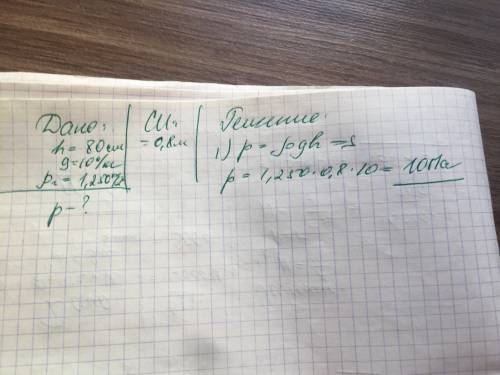 Дано:
h = 80 см
g = 10 Н/кг
ρ = 1,250
p - ?
СИ:
= 0,8 м
Решение:
1) p = ρgh =>
p = 1,250·0,8·10 = 10 Па